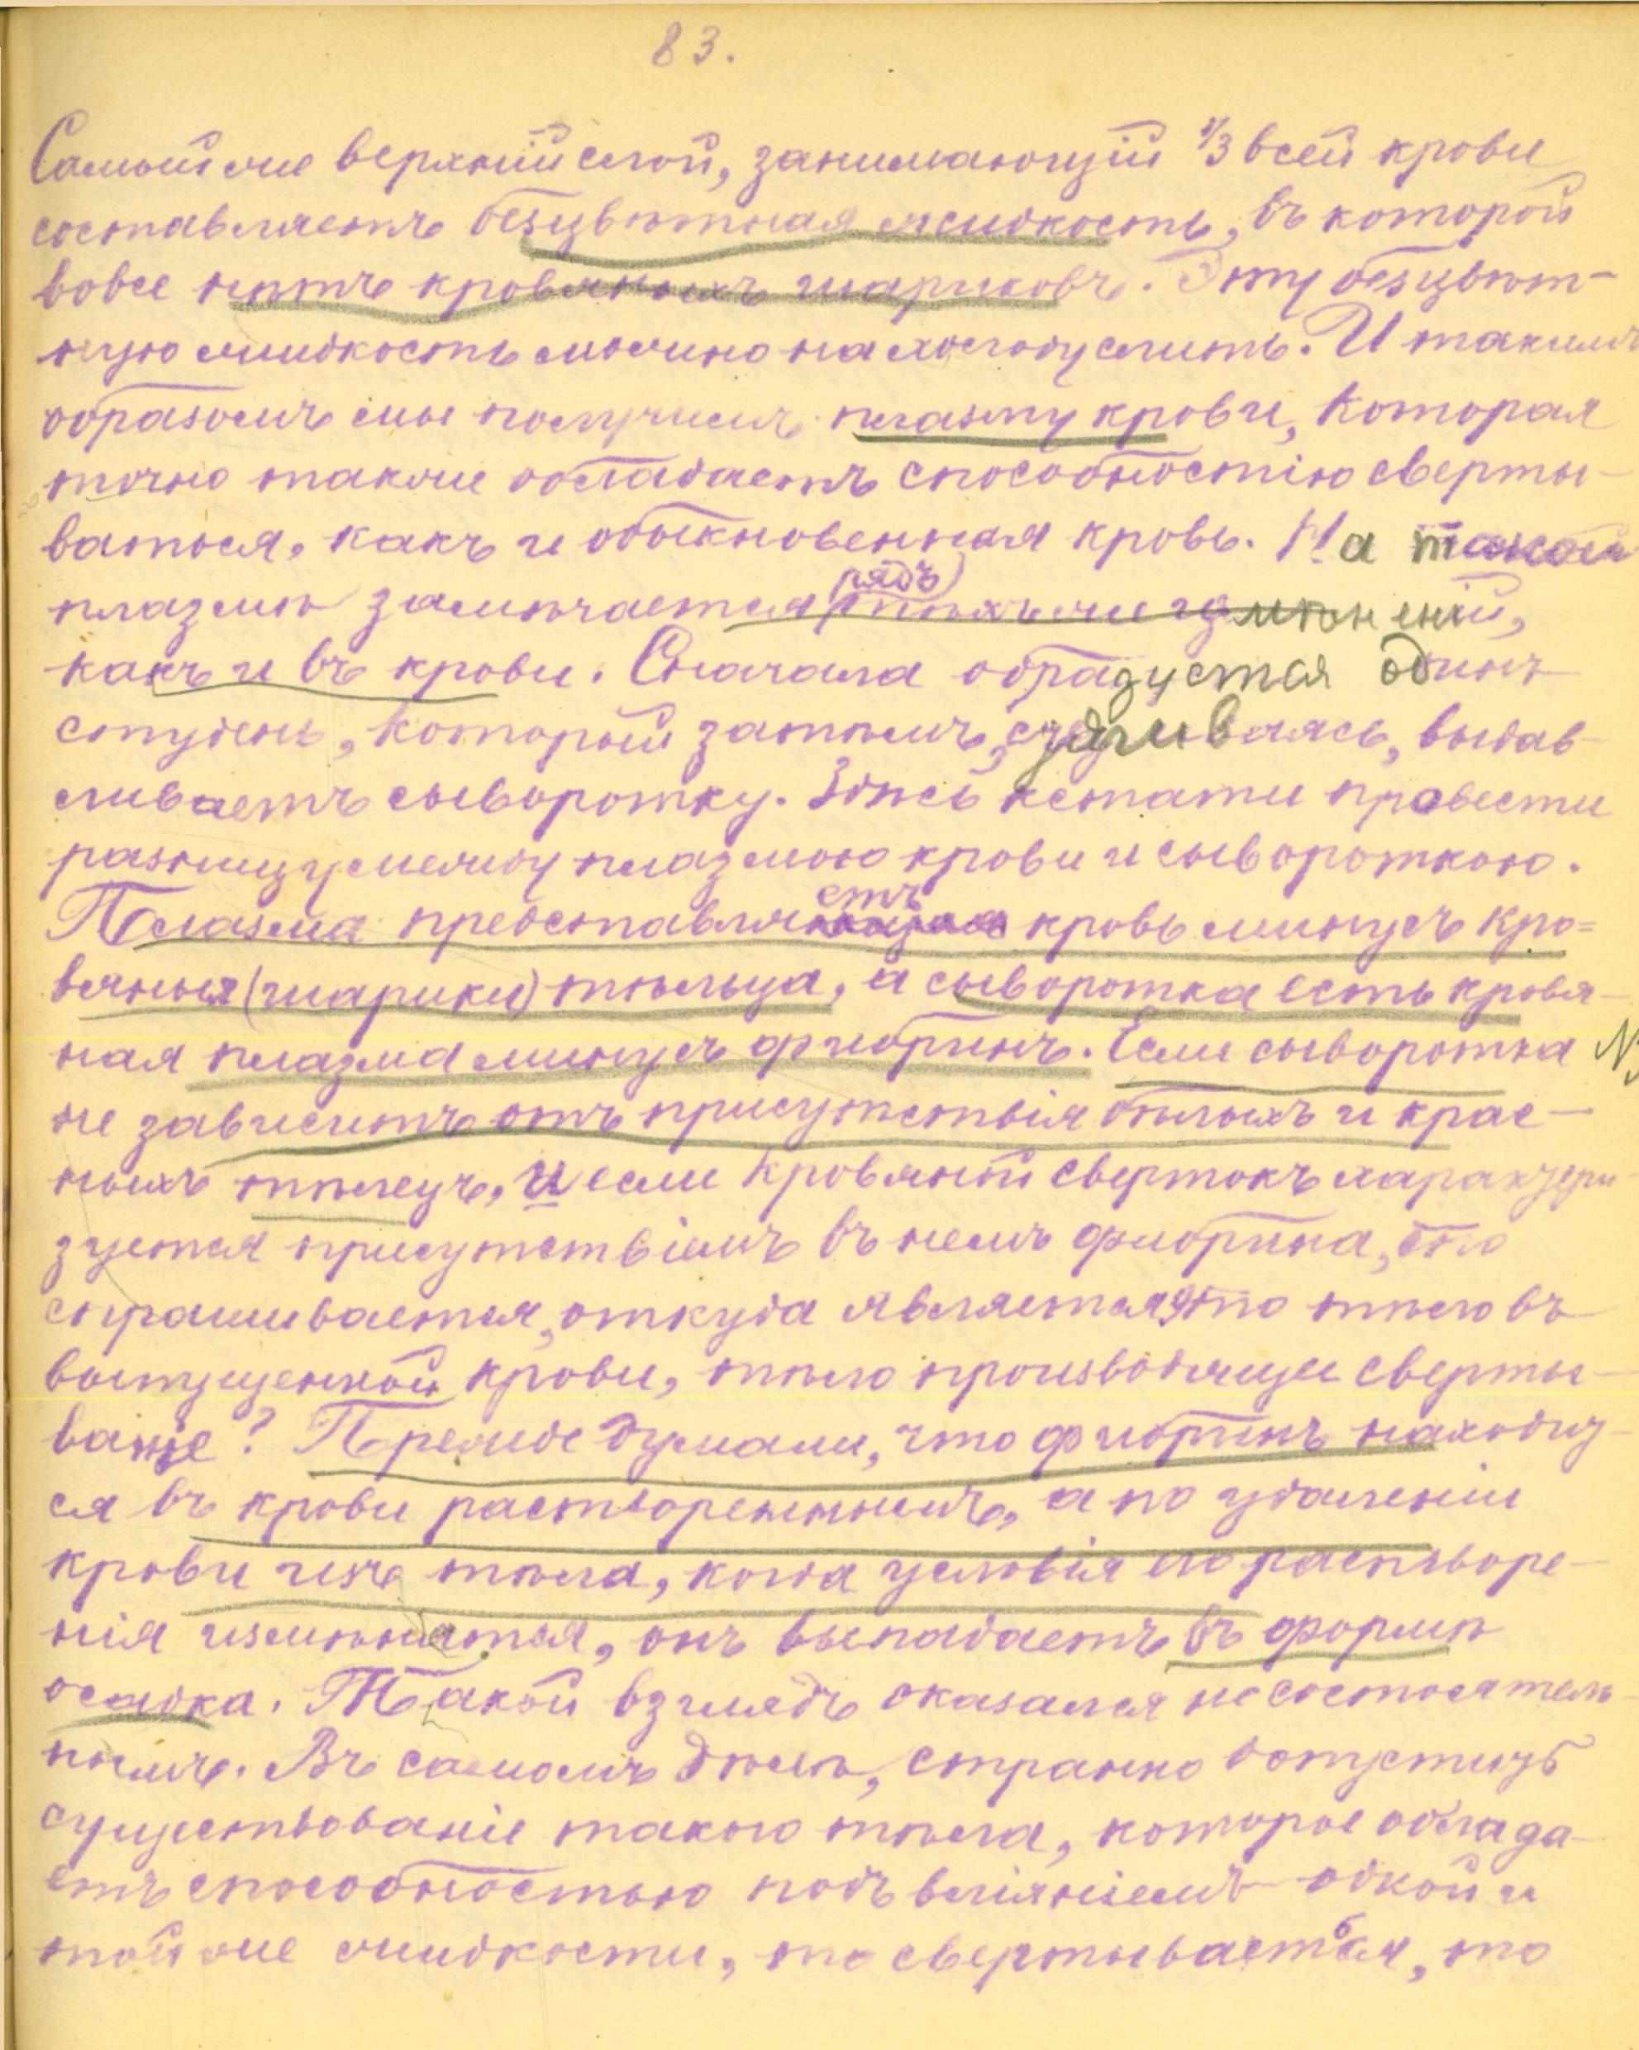 83.
Самый же верхній слой, занимающій 1/3 всей крови
составляетъ безцвѣтная жидкость, въ которой
вовсе нѣтъ кровяныхъ шариковъ. Эту безцвѣт-
ную жидкость можно на холоду слить. И такимъ
образомъ мы получимъ плазму крови, которая
точно также обладаетъ способностію сверты-
ваться, какъ и обыкновенная кровь. На такой
плазмѣ замѣчается рядъ тѣхъ же измѣненій,
какъ и въ крови. Сначала образуется одинъ
студень, который затѣмъ, съуживаясь, выдав-
ливаетъ сыворотку. Здѣсь кстати провести
разницу между плазмою крови и сывороткою.
Плазма представляетъ кровь минусъ кро=
вяныя (шарики) тѣльца, а сыворотка есть кровя-
ная плазма минусъ фибринъ. Если сыворотка
не зависитъ отъ присутствія бѣлыхъ и крас-
ныхъ тѣлецъ, и если кровяной свертокъ характери-
зуется присутствіемъ въ немъ фибрина, то
спрашивается, откуда является это тѣло въ
выпущенной крови, тѣло производящее сверты-
ваніе? Прежде думали, что фибринъ находит-
ся въ крови раствореннымъ, а по удаленіи
крови изъ тѣла, когда условія его растворе-
нія измѣнятся, онъ выпадаетъ въ формѣ
осадка. Такой взглядъ оказался несостоятель-
нымъ. Въ самомъ дѣлѣ, странно допустить
существованіе такого тѣла, которое облада-
етъ способностью подъ вліяніемъ одной и
той же жидкости, то свертываться, то